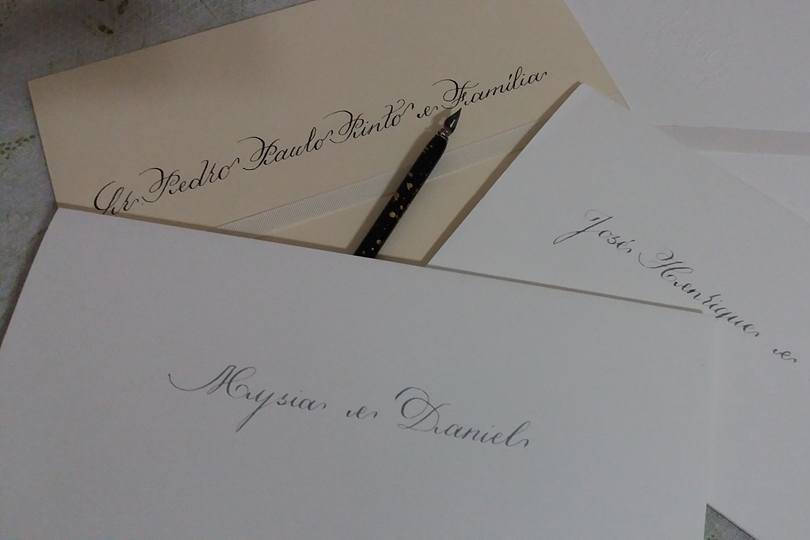 Sr Pedro Paulo Pinto e Família
José Henrique e
Mysia e Daniel